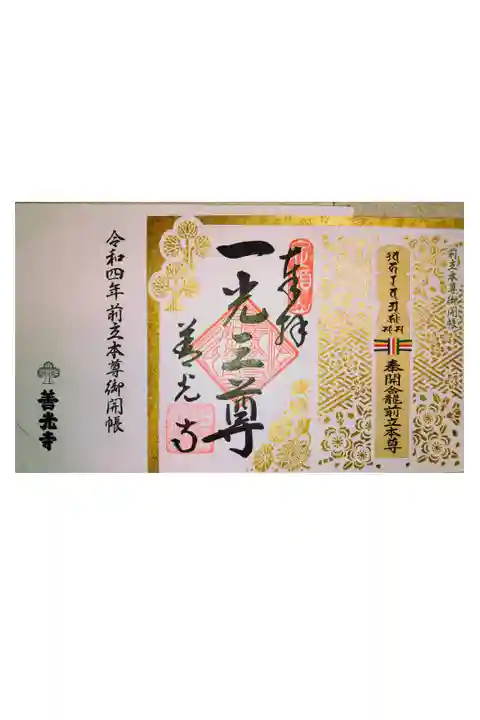 前立本尊御開帳
奉開金龍前立本尊
奉拝
一光三尊
善光寺
令和四年前立本尊御開帳
善光寺